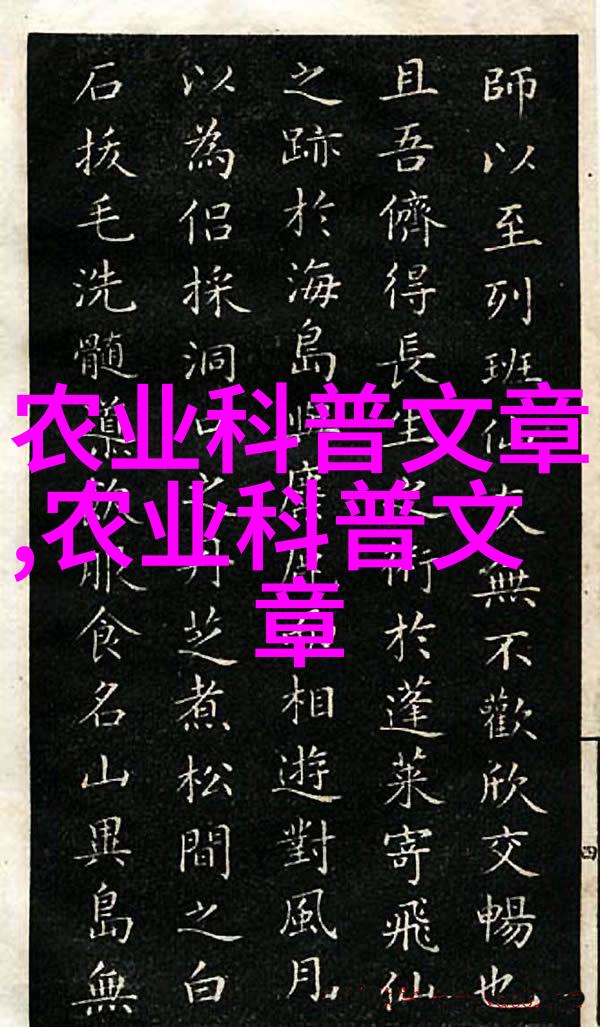 农业科普文章
,农业科普文
章
師以至列班仙次無不歡欣交暢也
且吾儕得長生之術於蓬萊寄飛仙
之跡於海島與麋鹿相遊對風月
以為侶採洞口之丹芝煮松間之白
石拔毛洗髓服食名山異島無
四